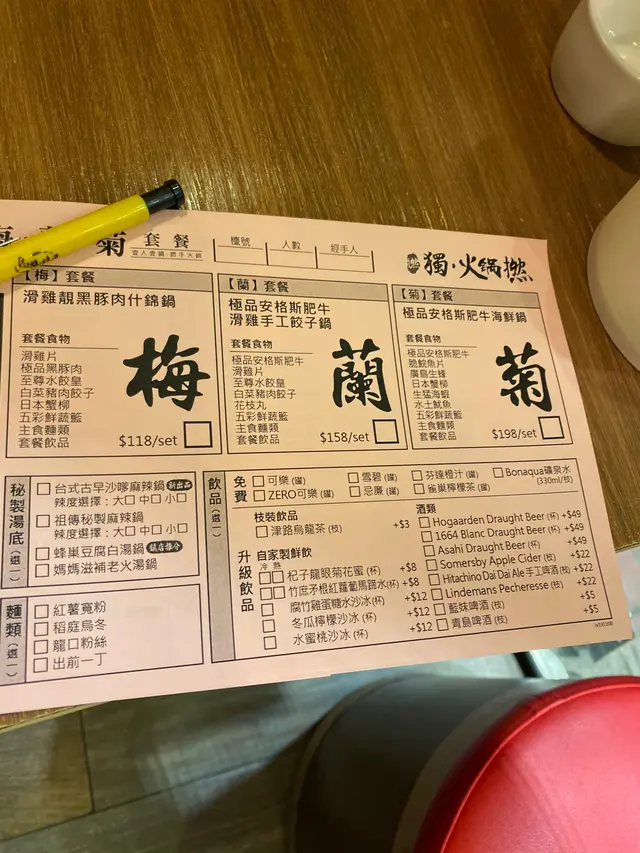 菊 套餐
壹人壹鍋·戥手火鍋
檯號
人數
經手人
獨·火鍋撚
【梅】套餐
滑雞靚黑豚肉什錦鍋
套餐食物
滑雞片
極品黑豚肉
至尊水餃皇
白菜豬肉餃子
日本蟹柳
五彩鮮蔬籃
主食麵類
套餐飲品
梅
$118/set
【蘭】套餐
極品安格斯肥牛
滑雞手工餃子鍋
套餐食物
極品安格斯肥牛
滑雞片
至尊水餃皇
白菜豬肉餃子
花枝丸
五彩鮮蔬籃
主食麵類
套餐飲品
蘭
$158/set
【菊】套餐
極品安格斯肥牛海鮮鍋
套餐食物
極品安格斯肥牛
脆鯇魚片
廣島生蠔
日本蟹柳
生猛海蝦
水土魷魚
五彩鮮蔬籃
主食麵類
套餐飲品
菊
$198/set
秘製湯底(選一)
台式古早沙嗲麻辣鍋 新出品
辣度選擇：大口 中口 小口
祖傳秘製麻辣鍋
辣度選擇：大口 中口 小口
蜂巢豆腐白湯鍋 鎮店推介
媽媽滋補老火湯鍋
麵類(選一)
紅薯寬粉
稻庭烏冬
龍口粉絲
出前一丁
飲品(選一)
免費
可樂(罐)
雪碧(罐)
芬達橙汁(罐)
Bonaqua礦泉水
(330ml/枝)
ZERO可樂(罐)
忌廉(罐)
雀巢檸檬茶(罐)
升級飲品
枝裝飲品
津路烏龍茶(枝) +$3
自家製鮮飲
冷 熱
杞子龍眼菊花蜜(杯) +$8
竹蔗茅根紅蘿蔔馬蹄水(杯) +$8
腐竹雞蛋糖水沙冰(杯) +$12
冬瓜檸檬沙冰(杯) +$12
水蜜桃沙冰(杯) +$12
酒類
Hogaarden Draught Beer (杯) +$49
1664 Blanc Draught Beer (杯) +$49
Asahi Draught Beer (杯) +$49
Somersby Apple Cider (枝) +$22
Hitachino Dai Dai Ale 手工啤酒(枝) +$22
Lindemans Pecheresse (枝) +$22
藍妹啤酒(枝) +$5
青島啤酒(枝) +$5